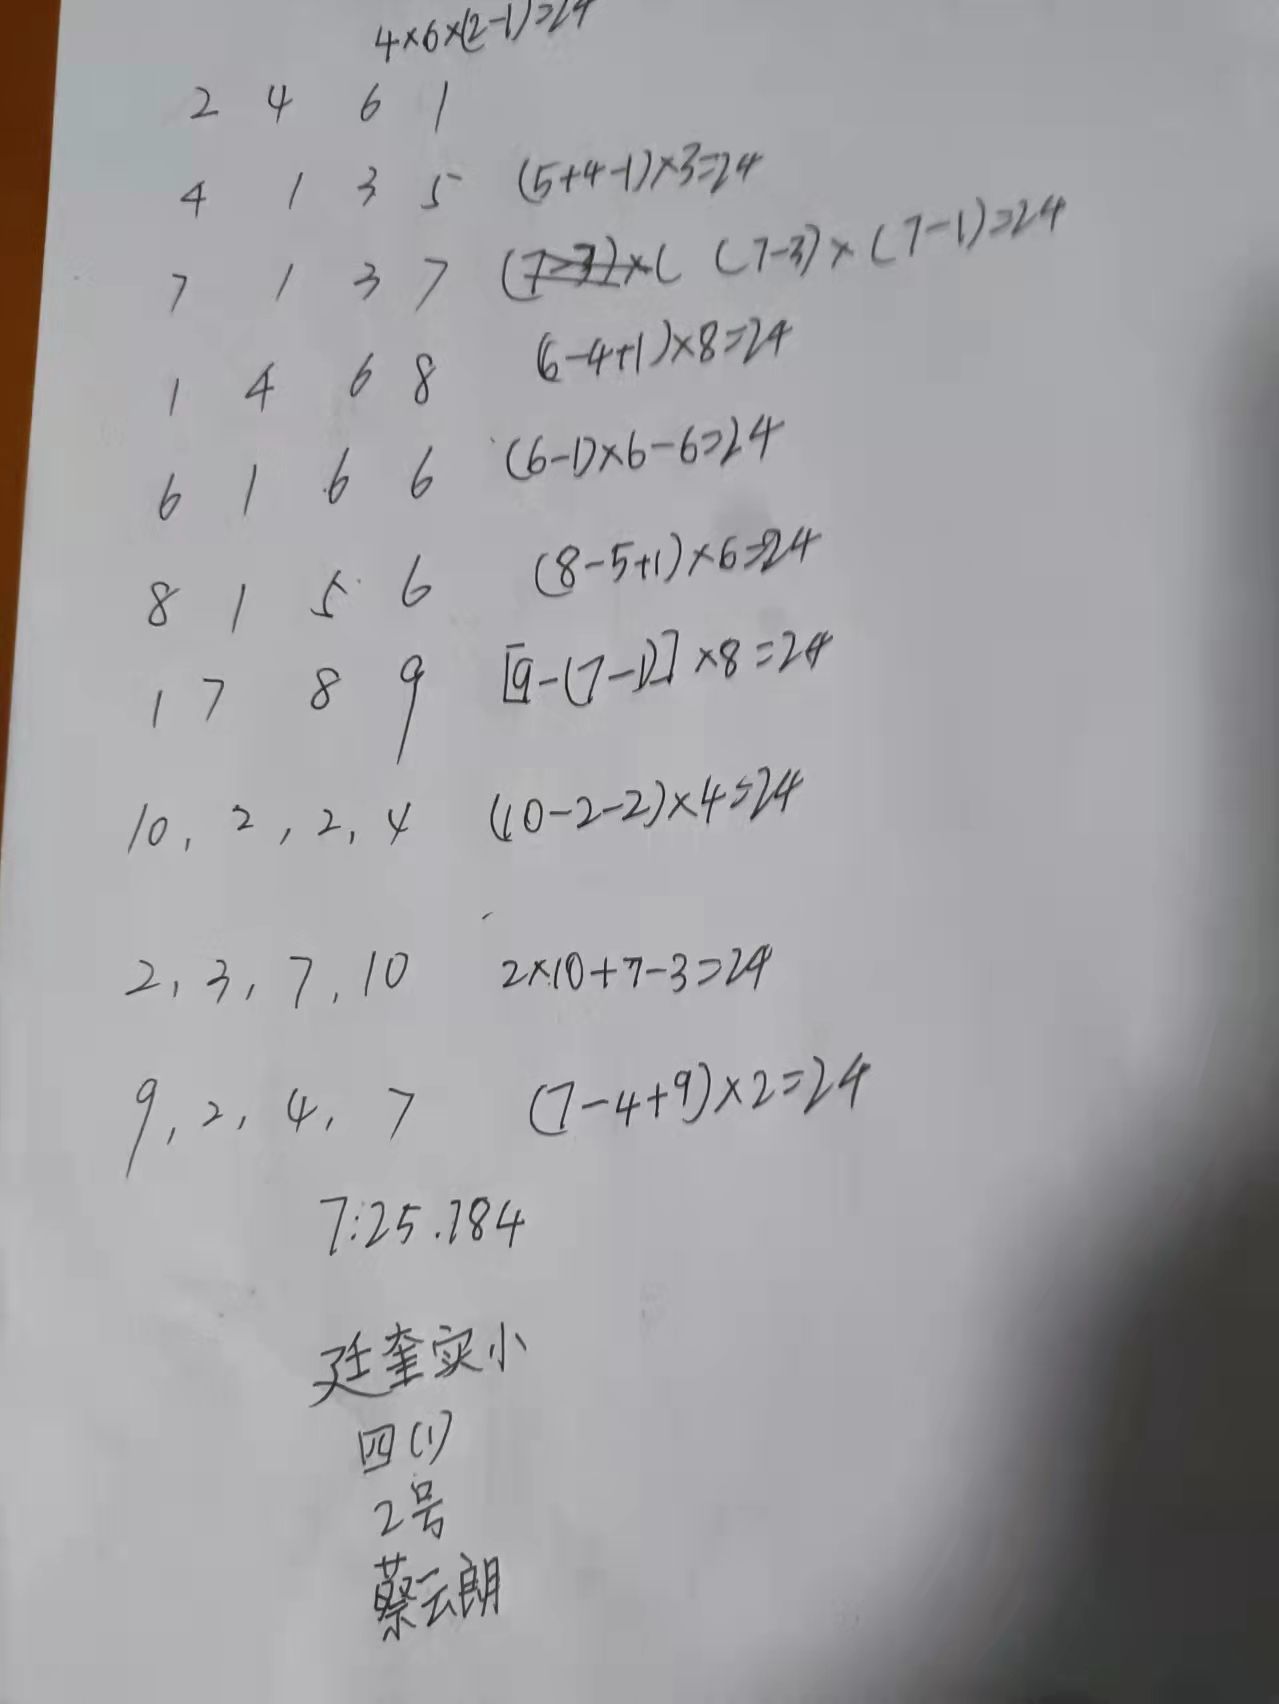 4×6×(2-1)=24
2 4 6 1
4 1 3 5 (5+4-1)×3=24
7 1 3 7 (7-3)×( (7-3)×(7-1)=24
1 4 6 8 (6-4+1)×8=24
6 1 6 6 (6-1)×6-6=24
8 1 5 6 (8-5+1)×6=24
1 7 8 9 [9-(7-1)]×8=24
10, 2, 2, 4 (10-2-2)×4=24
2, 3, 7, 10 2×10+7-3=24
9, 2, 4, 7 (7-4+9)×2=24
7:25.784
廷奎实小
四(1)
2号
蔡云朗